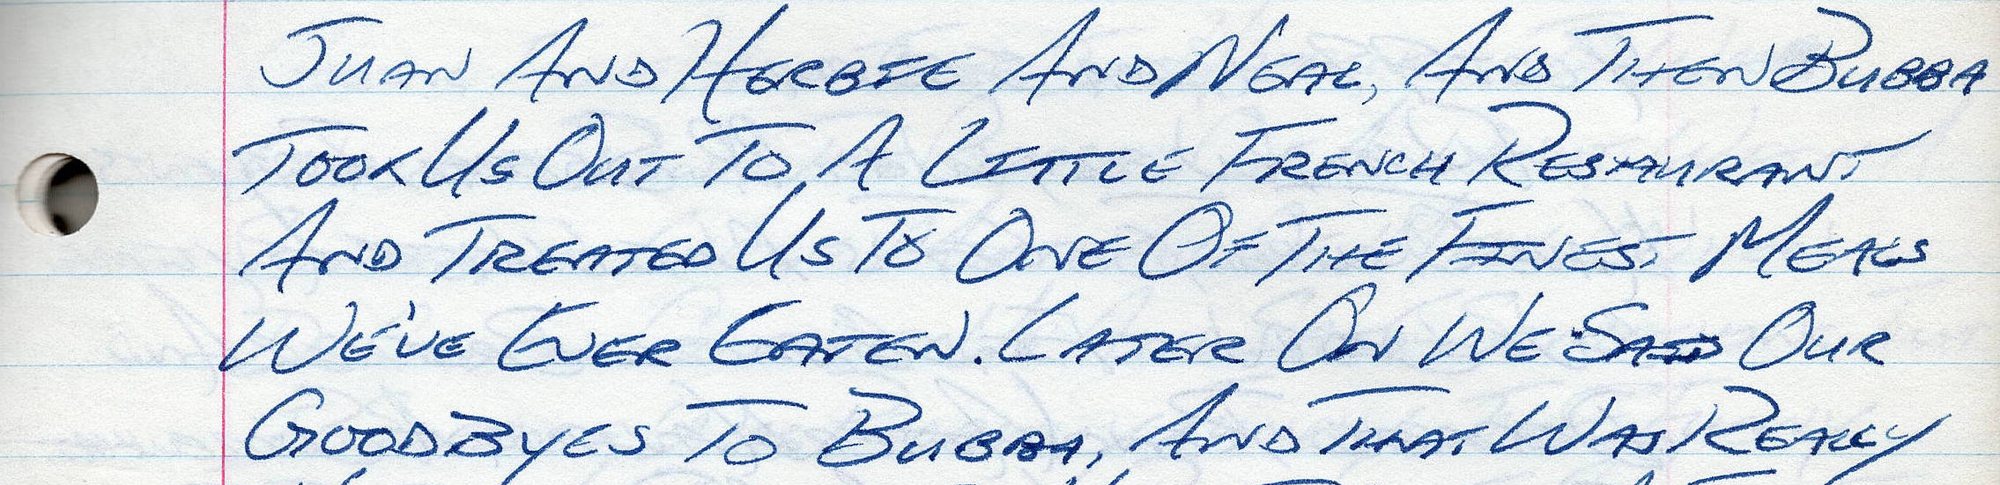 Juan And Herbie And Neal, And Then Bubba
Took Us Out To A Little French Restaurant
And Treated Us To One Of The Finest Meals
We've Ever Eaten. Later On We Said Our
Goodbyes To Bubba, And That Was Really